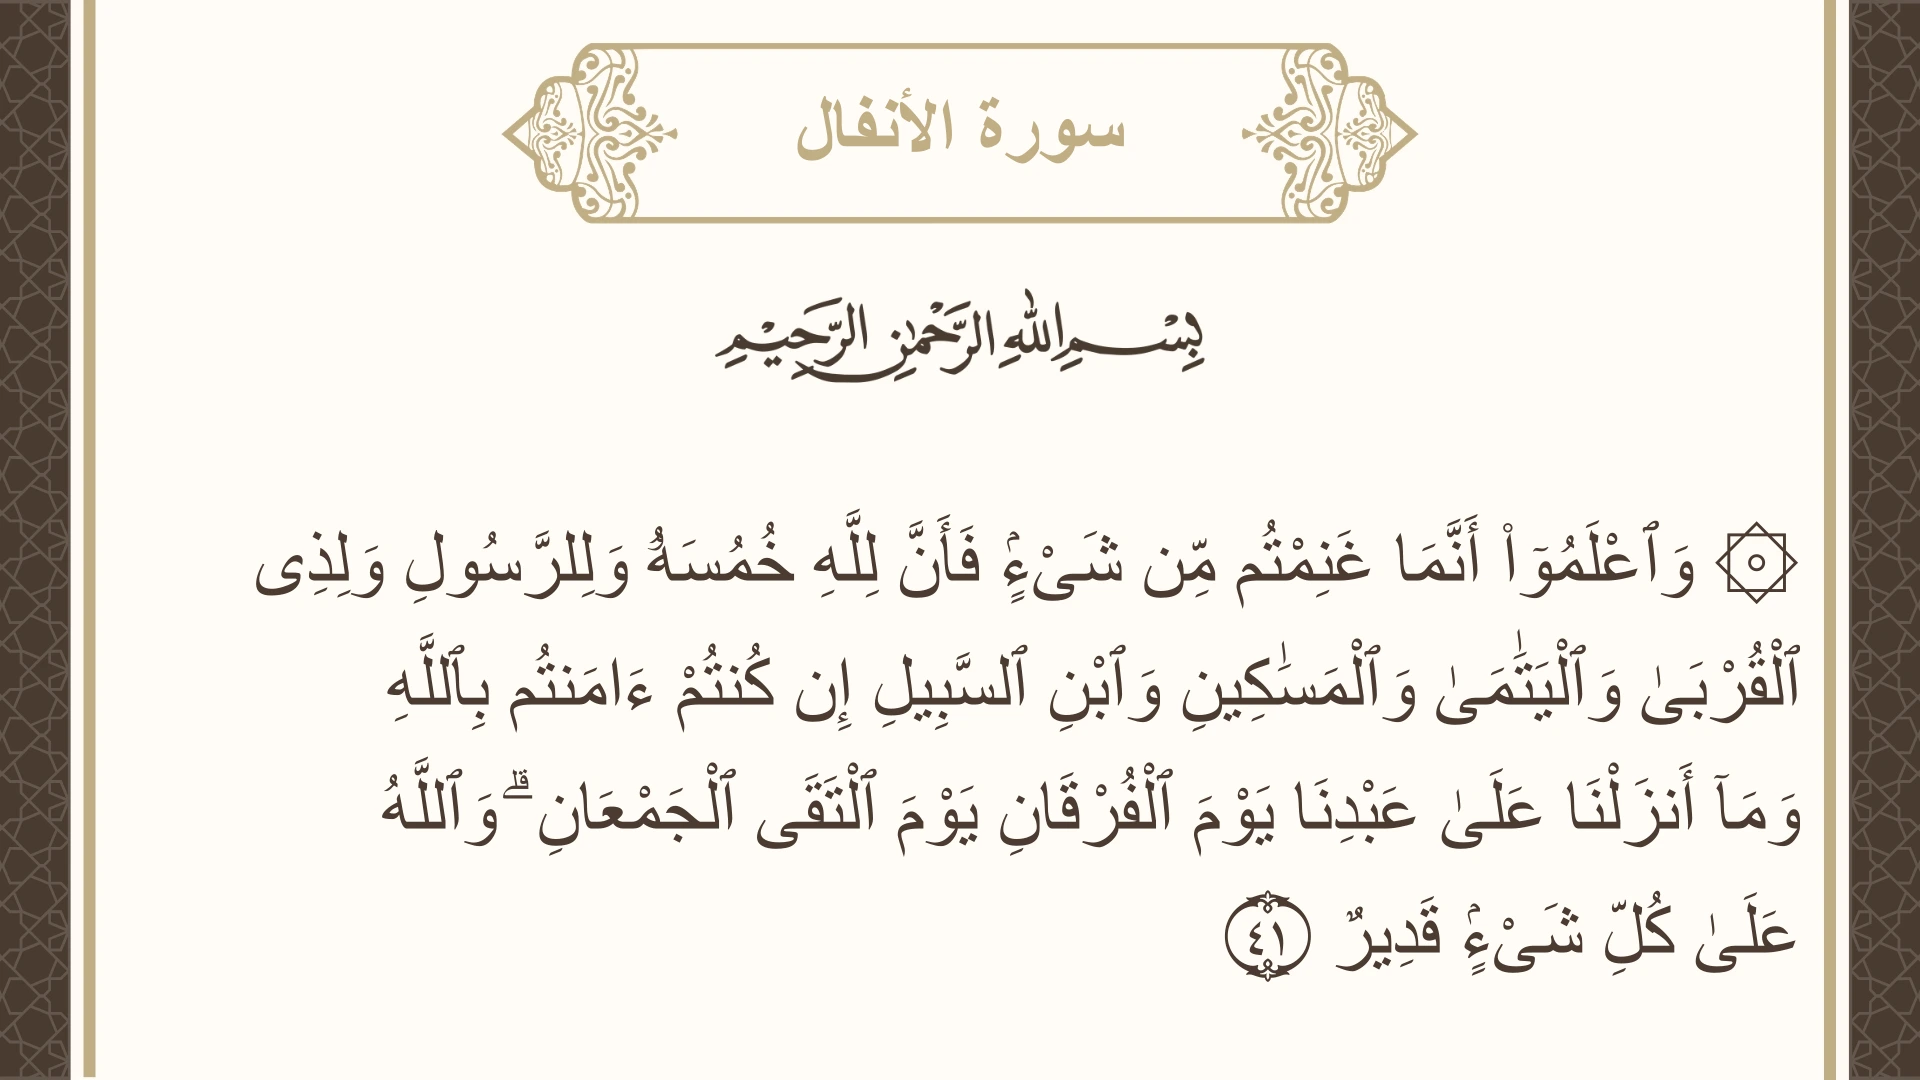 سورة الأنفال
بِسْمِ اللهِ الرَّحْمٰنِ الرَّحِيْمِ
۞ وَٱعْلَمُوٓا۟ أَنَّمَا غَنِمْتُم مِّن شَىْءٍۢ فَأَنَّ لِلَّهِ خُمُسَهُۥ وَلِلرَّسُولِ وَلِذِى
ٱلْقُرْبَىٰ وَٱلْيَتَـٰمَىٰ وَٱلْمَسَـٰكِينِ وَٱبْنِ ٱلسَّبِيلِ إِن كُنتُمْ ءَامَنتُم بِٱللَّهِ
وَمَآ أَنزَلْنَا عَلَىٰ عَبْدِنَا يَوْمَ ٱلْفُرْقَانِ يَوْمَ ٱلْتَقَى ٱلْجَمْعَانِ ۗ وَٱللَّهُ
عَلَىٰ كُلِّ شَىْءٍۢ قَدِيرٌ ٤١